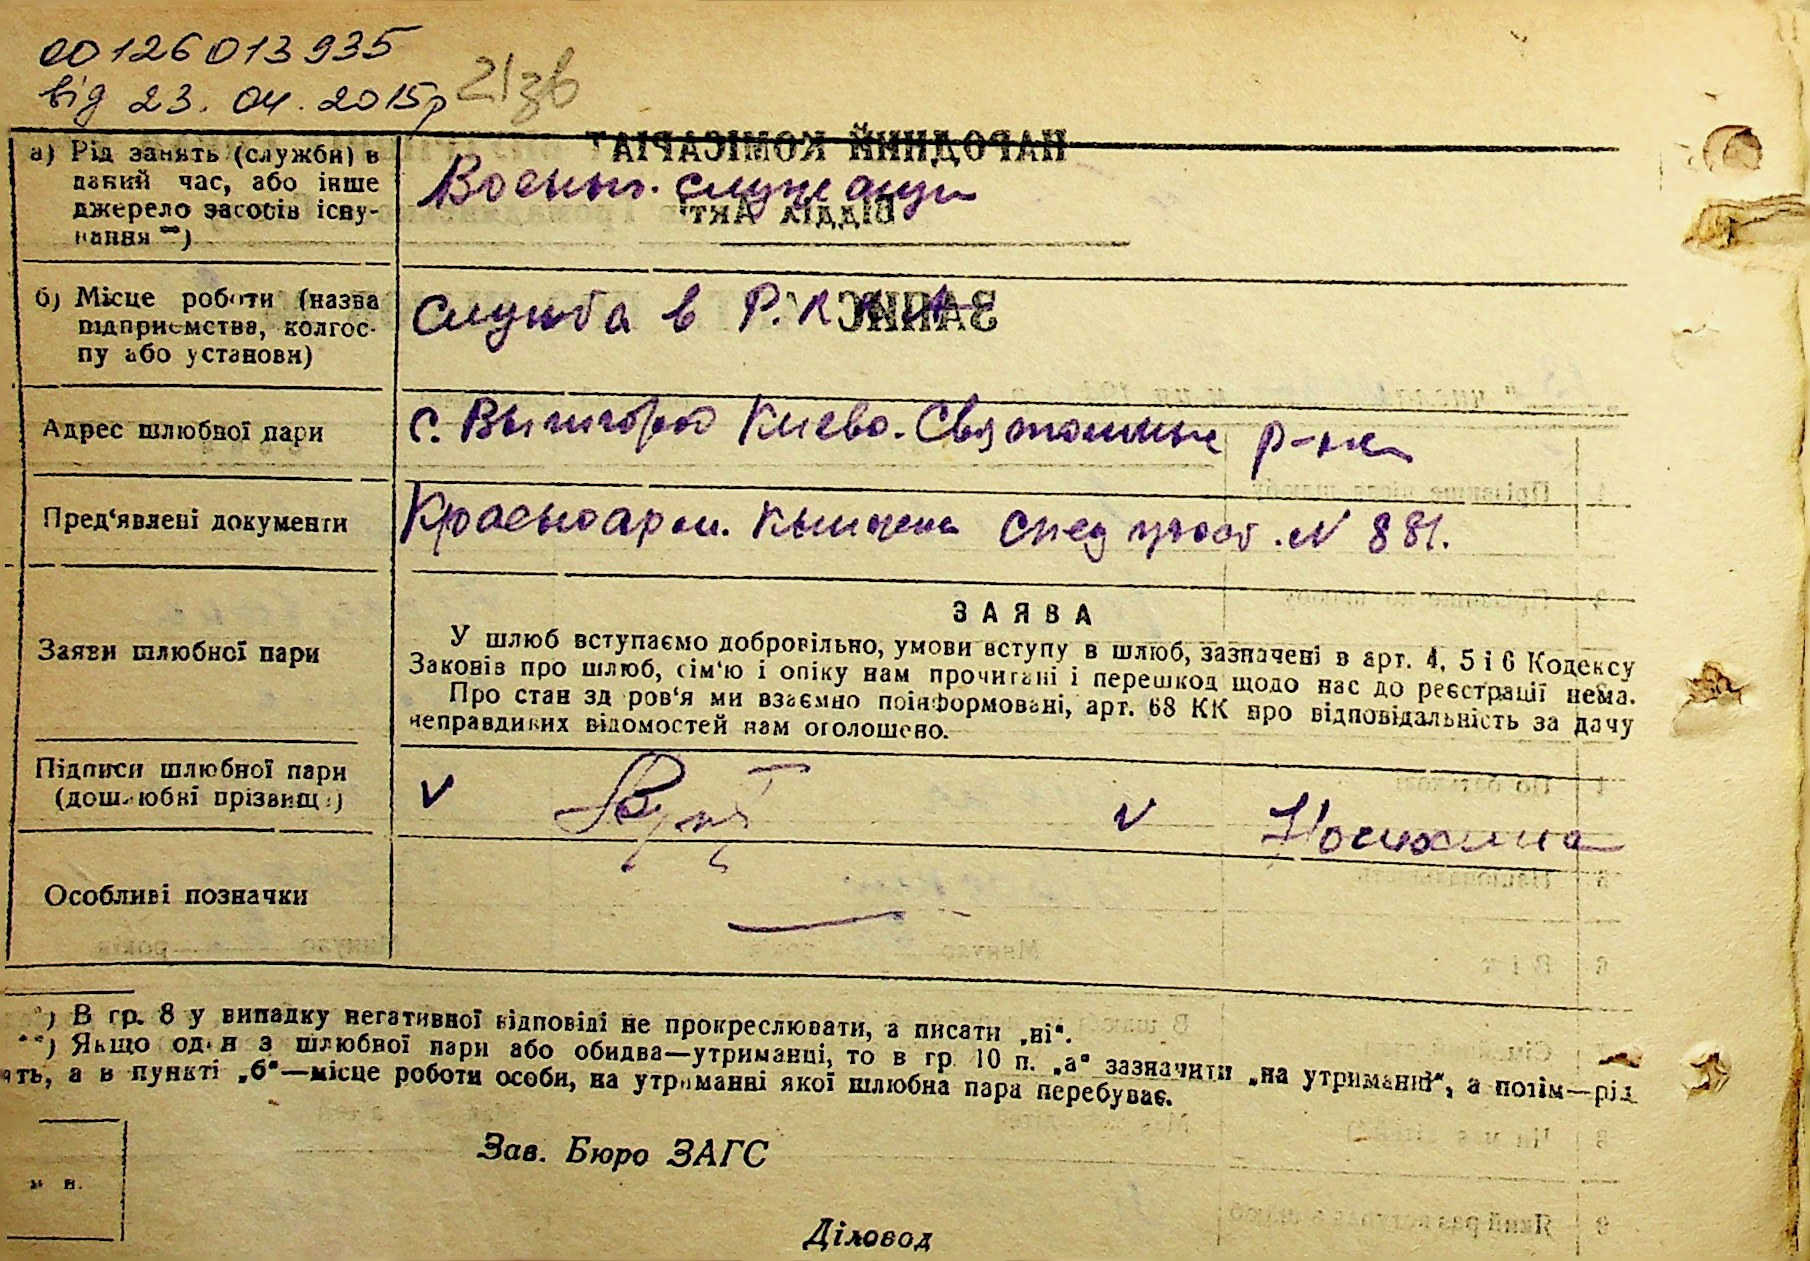 00126013935
від 23.04.2015р 21зв
а) Рід занять (служби) в
даний час, або інше
джерело засобів існу-
вання **)
Военно. служащи
б) Місце роботи (назва
підприємства, колгос-
пу або установи)
Служба в Р.К.К.А.
Адрес шлюбної пари
с. Вышгород Киево. Святошинс р-на
Пред'явлені документи
Красноарм. Книжка Снед удост. № 881.
Заяви шлюбної пари
ЗАЯВА
У шлюб вступаємо добровільно, умови вступу в шлюб, зазначені в арт. 4, 5 і 6 Кодексу
Законів про шлюб, сім'ю і опіку нам прочитані і перешкод щодо нас до реєстрації нема.
Про стан здоров'я ми взаємно поінформовані, арт. 68 КК про відповідальність за дачу
неправдивих відомостей нам оголошено.
Підписи шлюбної пари
(дошлюбні прізвища)
v v Носихина
Особливі позначки
*) В гр. 8 у випадку негативної відповіді не прокреслювати, а писати „ні".
**) Якщо один з шлюбної пари або обидва—утриманці, то в гр. 10 п. „а" зазначити „на утриманні", а потім—рід
ять, а в пункті „б"—місце роботи особи, на утриманні якої шлюбна пара перебуває.
Зав. Бюро ЗАГС
м п.
Діловод